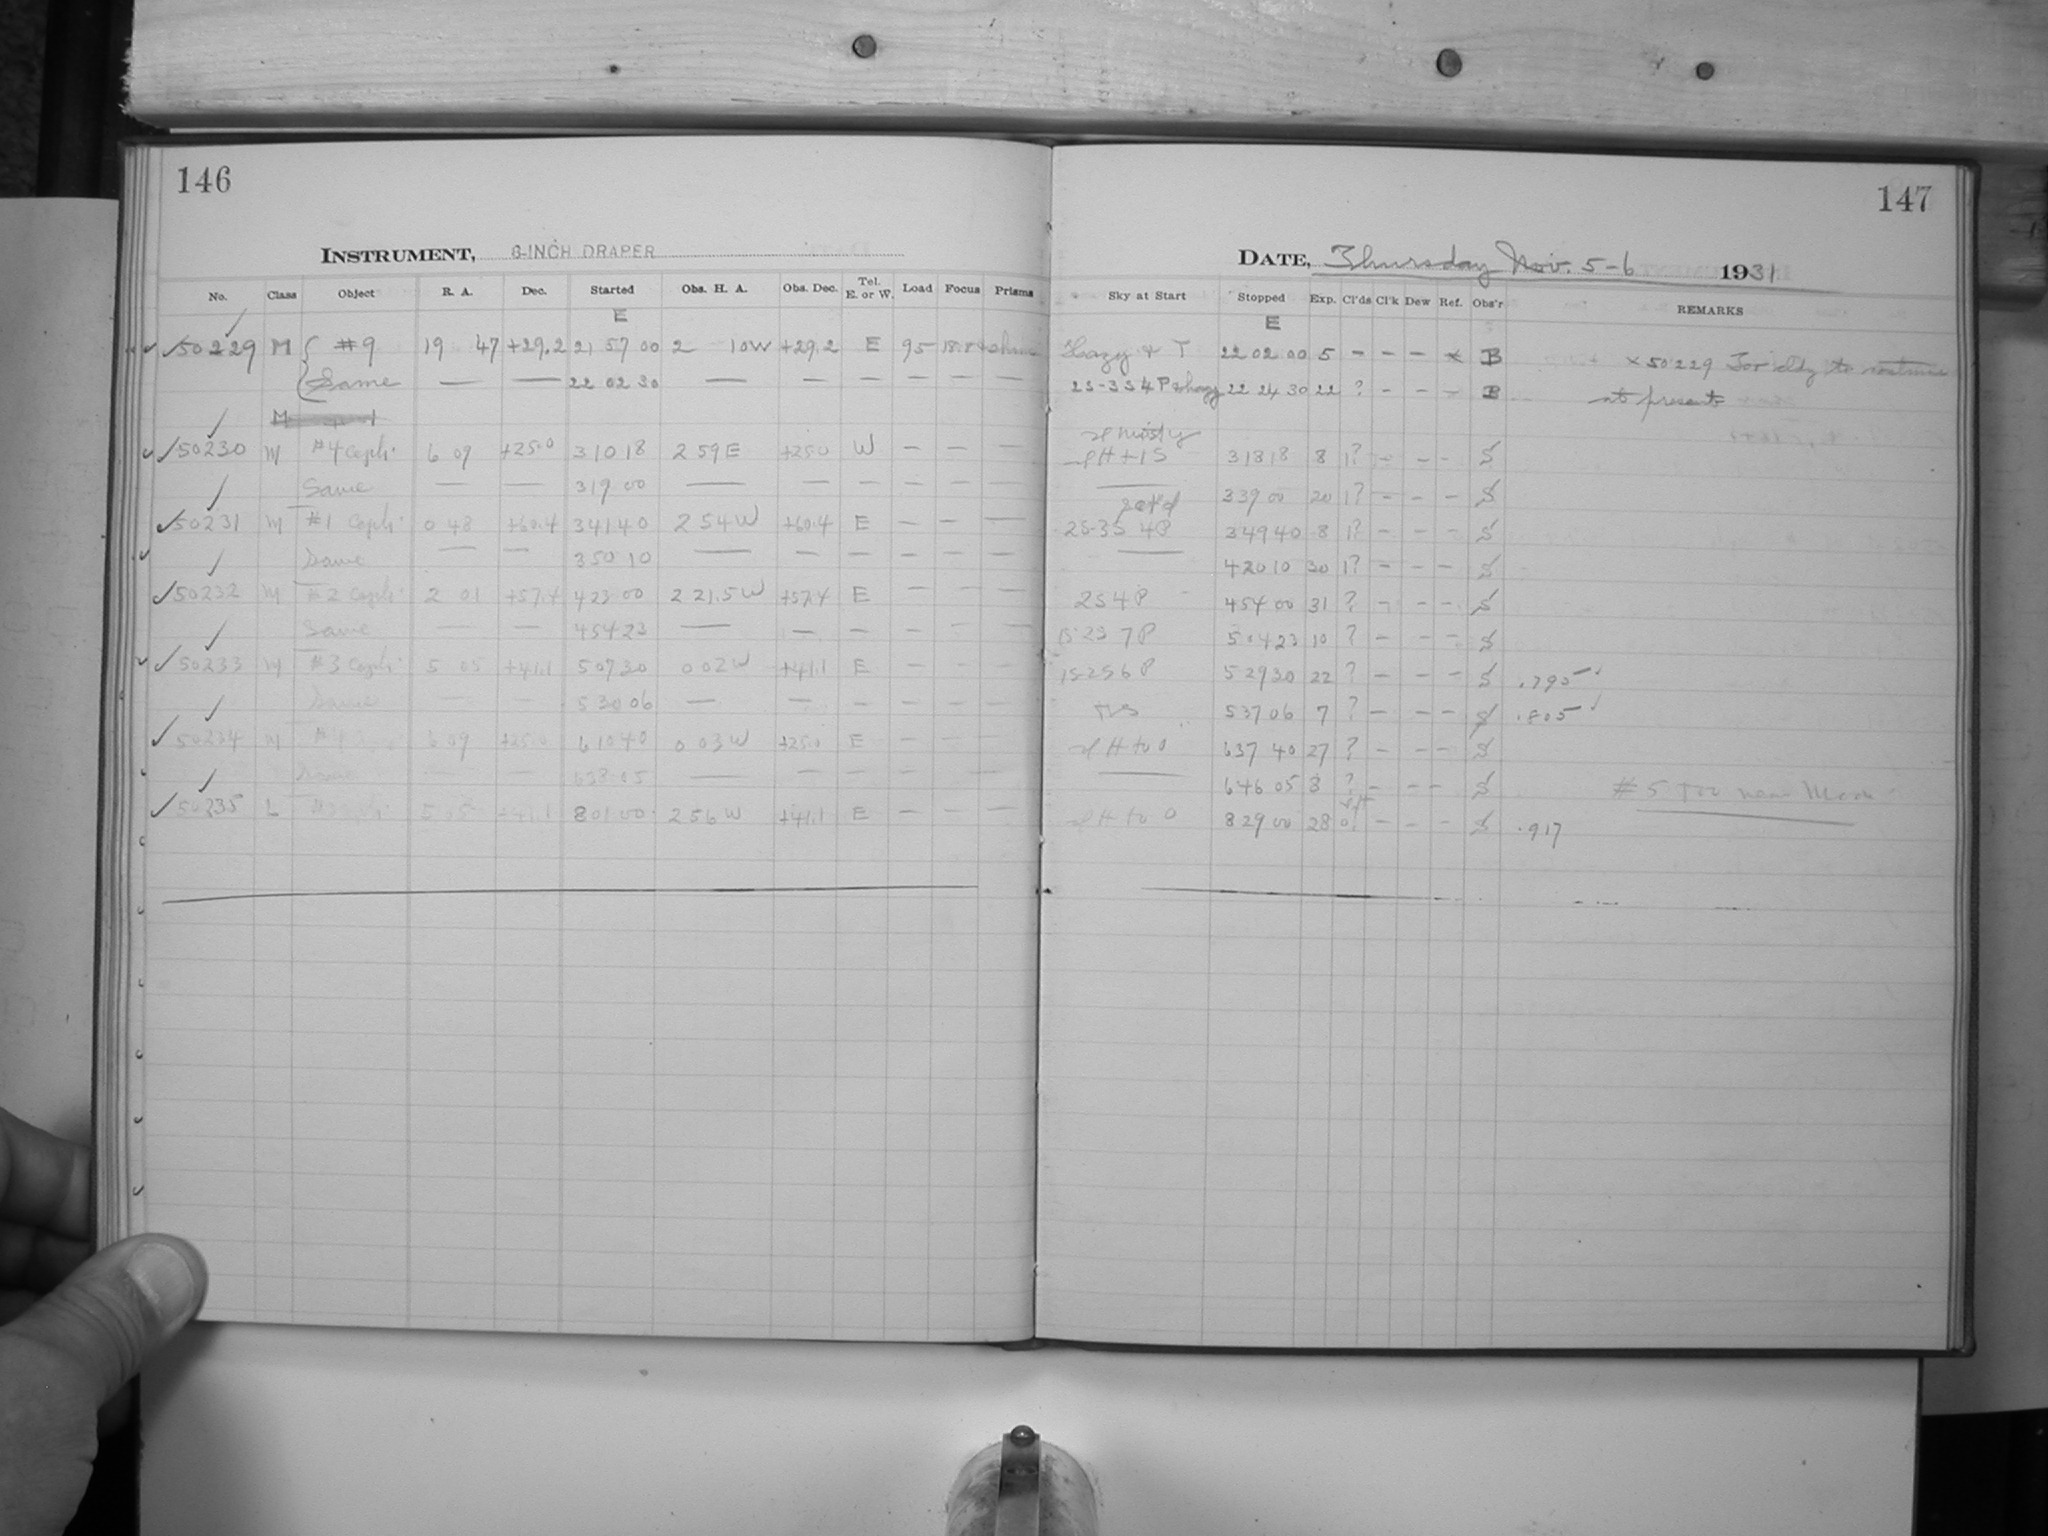 146
INSTRUMENT, 8-INCH DRAPER
No. Class Object R. A. Dec. Started Obs. H. A. Obs. Dec. Tel. E. or W. Load Focus Prisms
E
50229 M #9 19 47 +29.2 21 57 00 2 10W +29.2 E 95
Same — — 22 02 30 — — — — — —
M
50230 M #4 Ceph. 6 09 +25.0 3 10 18 2 59 E +25.0 W — —
Same — — 3 19 00 — — — — — —
50231 M #1 Ceph. 0 48 +60.4 3 41 40 2 54 W +60.4 E — — —
Same — — 3 50 10 — — — — — —
50232 M #2 Ceph. 2 01 +57.4 4 23 00 2 21.5 W +57.4 E — — —
Same — — 4 54 23 — — — — — —
50233 M #3 Ceph. 5 05 +41.1 5 07 30 0 02 W +41.1 E — — —
Same — — 5 30 06 — — — — — —
50234 M #4 6 09 +25.0 6 10 40 0 03 W +25.0 E — — —
Same — — 6 38 05 — — — — — —
50235 L 5 05 +41.1 8 01 00 2 56 W +41.1 E — — —
147
DATE, Thursday Nov. 5-6 1931
Sky at Start Stopped Exp. Cl'ds Cl'k Dew Ref. Obs'r REMARKS
E
Hazy & T 22 02 00 5 – – – x B x 50229 For to
2S-3S 4P & hazy 22 24 30 22 ? – – – B at present
misty
H + 1S 3 18 18 8 1? – – – S
— 3 39 00 20 1? – – – S
2S-3S 4P 3 49 40 8 1? – – – S
— 4 20 10 30 1? – – – S
2S 4P 4 54 00 31 ? – – – S
2S 7P 5 04 23 10 ? – – – S
1S-2S 6P 5 29 30 22 ? – – – S .795
5 37 06 7 ? – – – S .805
H to 0 6 37 40 27 ? – – – S
— 6 46 05 8 ? – – – S #5 too near Moon
H to 0 8 29 00 28 – – – S .917